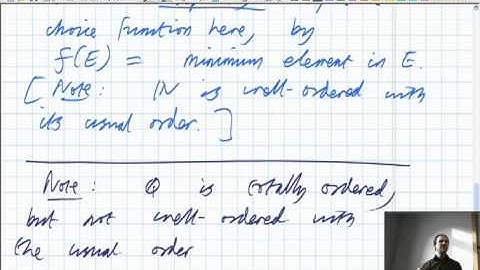 choice function here, by
f(E) = minimum element in E.
[Note: ℕ is well-ordered with
its usual order.]
Note: ℚ is totally ordered,
but not well-ordered with
the usual order